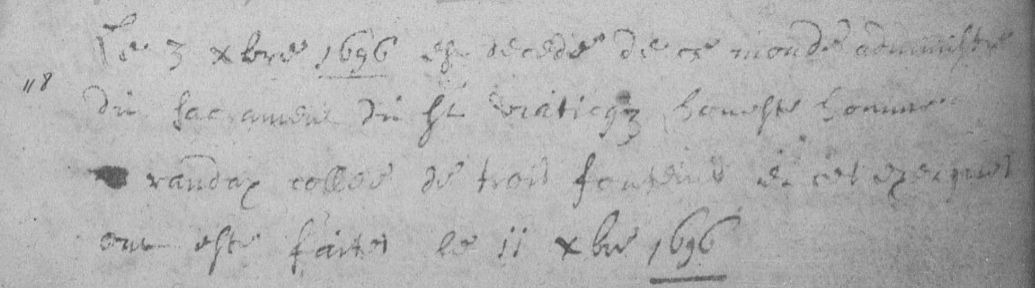 Le 3 xbre 1696 est decede de ce monde administre
118 du sacrament du St viaticq3 honeste homme
randax collee de trois fonteine et ces exeques
ont este faites le 11 xbre 1696